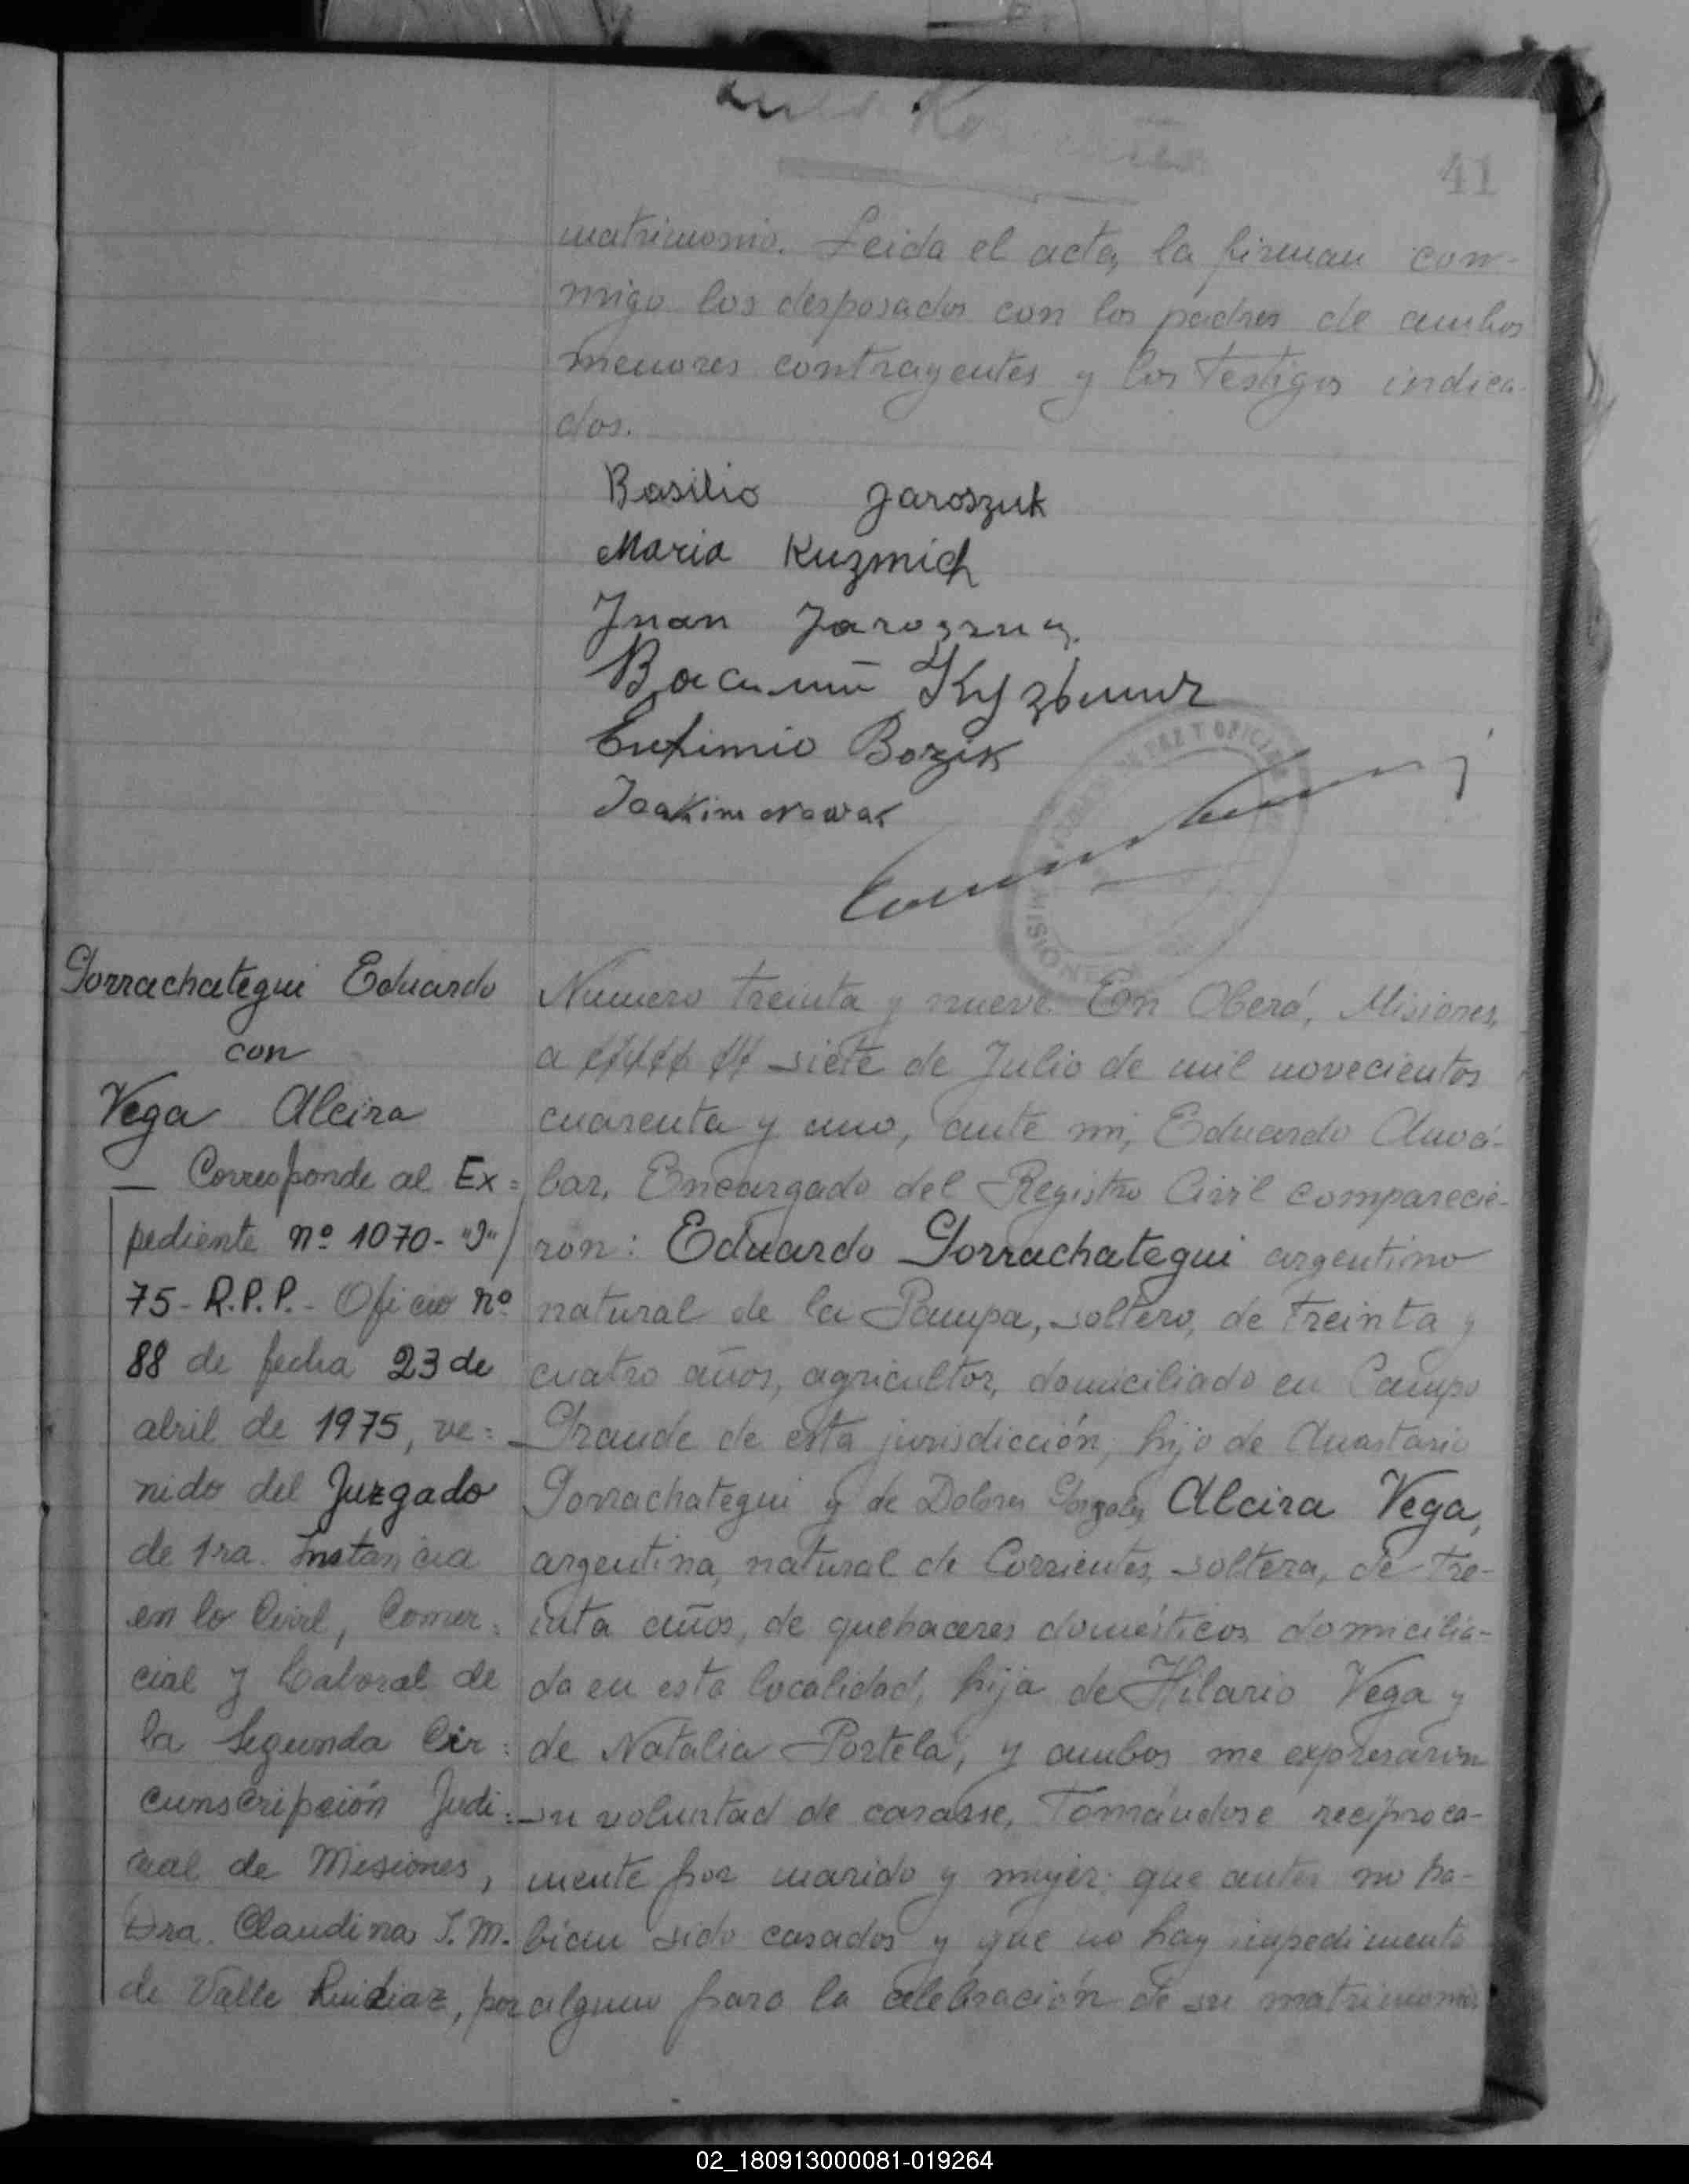 41
matrimonio. Leida el acta, la firman con-
migo los desposados con los padres de ambos
menores contrayentes y los testigos indica-
dos.
Basilio Jaroszuk
Maria Kuzmich
Juan
Eufimio Bozik
Joakim Nowak
MISIONES
Gorrachategui Eduardo
con
Vega Alcira
— Corresponde al Ex=
pediente nº 1070-"J"/
75-R.P.P.- Oficio nº
88 de fecha 23 de
abril de 1975, ve=
nido del Juzgado
de 1ra. Instancia
en lo Civil, Comer=
cial y Laboral de
la Segunda Cir=
cunscripción Judi=
cial de Misiones,
Dra. Claudina I. M.
de Valle Ruidiaz, por
Numero treinta y nueve. En Oberá, Misiones,
a siete de Julio de mil novecientos
cuarenta y uno, ante mi, Eduardo
Encargado del Registro Civil comparecie-
ron: Eduardo Gorrachategui argentino
natural de la Pampa, soltero, de treinta y
cuatro años, agricultor, domiciliado en Campo
Grande de esta jurisdicción, hijo de Anastasio
Gorrachategui y de Dolores Gonzales, Alcira Vega,
argentina, natural de Corrientes, soltera, de tre-
inta años, de quehaceres domésticos, domicilia-
da en esta localidad, hija de Hilario Vega y
de Natalia Portela, y ambos me expresaron
su voluntad de casarse, tomándose reciproca-
mente por marido y mujer: que antes no ha-
bian sido casados y que no hay impedimento
alguno para la celebración de su matrimonio
02_180913000081-019264